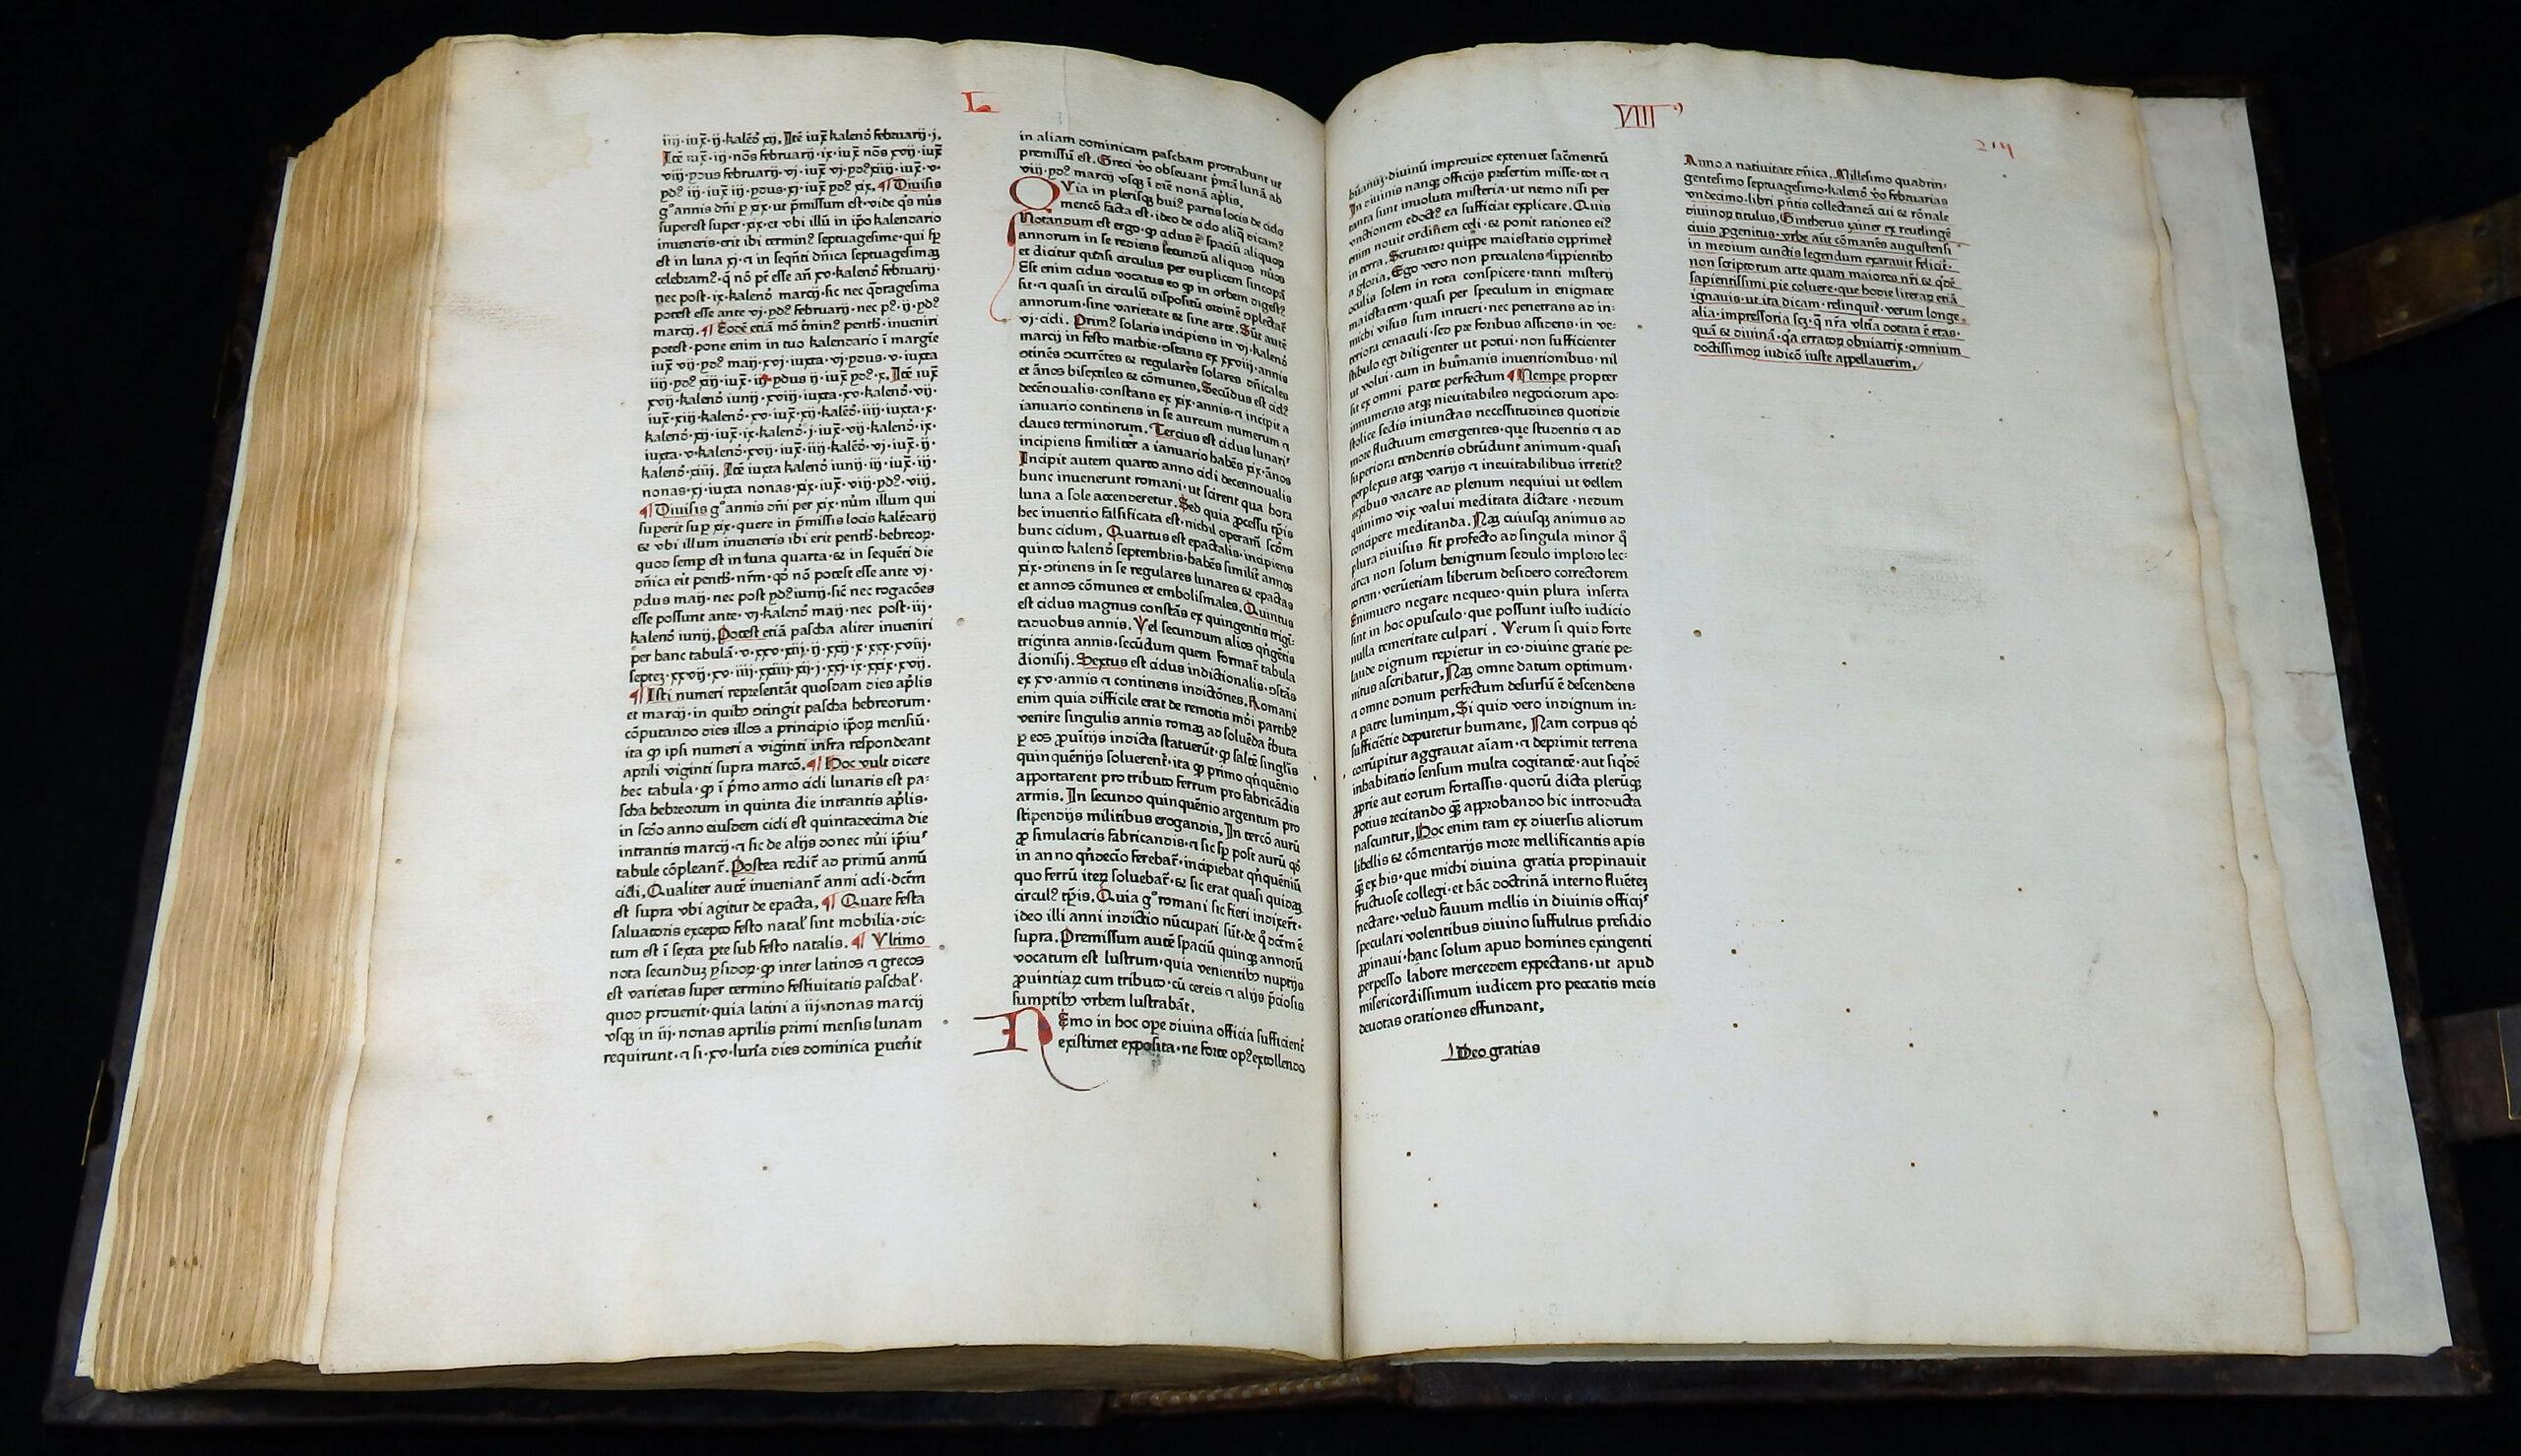 L
iiij·iux̄·ij·kalēd᷒ xij, Itē iux̄ kalend᷒ februarij·j,
Itē iux̄·iij·nōs februarij·ix·iux̄ nōs xvij·iux̄
viij·pdus februarij·vj·iux̄ vj·pdꝰ xiiij·iux̄·v·
pdꝰ iij·iux̄ iij·pdus·xj·iux̄ pdꝰ xix, ¶ Diuisis
g° annis dn̄i ꝑ xix·ut p̄missum est·vide qd᷒ nūs
superest super·xix·et vbi illū in ip̄o kalendario
inueneris·erit ibi terminꝰ septuagesime·qui sꝑ
est in luna xj·⁊ in seqn̄ti dn̄ica septuagesimaꝫ
celebramꝰ·q̄ nō pt̄ esse an̄ xv·kalend᷒ februarij·
nec post·ix·kalend᷒ marcij·sic nec q̄dragesima
potest esse ante vj·pdꝰ februarij·nec pꝰ·ij·pdꝰ
marcij. ¶ Eodē etiā mō t̄minꝰ penth̄·inueniri
potest·pone enim in tuo kalendario ī margīe
iux̄ vij·pdꝰ maij·xvj·iuxta·vj·pdus·v·iuxta
iij·pdꝰ xiij·iux̄·iij·pdus ij·iux̄ pdꝰ·x, Itē iux̄
xvij·kalend᷒ iunij·xviij·iuxta·xv·kalend᷒·vij·
iux̄·xiij·kalend᷒·xv·iux̄·xij·kalēd᷒·iiij·iuxta·x·
kalend᷒·xij·iux̄·ix·kalend᷒·j·iux̄·vij·kalend᷒·ix·
iuxta·v·kalend᷒·xvij·iux̄·iiij·kalēd᷒·vj·iux̄·ij·
kalend᷒·xiiij. Itē iuxta kalend᷒ iunij·iij·iux̄·iij·
nonas·xj·iuxta nonas·xix·iux̄·viij·pdꝰ·viij,
¶ Diuisis g° annis dn̄i per xix·nūm illum qui
superit suꝑ xix·quere in p̄missis locis kalēdarij
& vbi illum inueneris ibi erit penth̄·hebreoꝝ·
quod semꝑ est in luna quarta·& in sequēti die
dn̄ica eit penth̄·nr̄m·qd᷒ nō potest esse ante vj·
pdus maij·nec post pdꝰ iunij·sic̄ nec rogacōes
esse possunt ante·vj·kalend᷒ maij·nec post·iij·
kalend᷒ iunij, Potest etiā pascha aliter inueniri
per hanc tabulā·v·xxv·xiij·ij·xxij·x·xxx·xviij·
septeꝫ·xxvij·xv·iiij·xxiiij·xij·j·xxj·ix·xxix·xvij.
¶ Isti numeri representāt quosdam dies ap̄lis
et marcij·in quibꝰ ↄtingit pascha hebreorum·
cōputando dies illos a principio ip̄oꝝ mensiū·
ita ꝙ ipsi numeri a viginti infra respondeant
aprili viginti supra marcō. ¶ Hoc vult dicere
hec tabula·ꝙ ī p̄mo anno cicli lunaris est pa-
scha hebreorum in quinta die intrantis ap̄lis·
in scd᷒o anno eiusdem cicli est quintadecima die
intrantis marcij·⁊ sic de alijs donec nūi ip̄iuꝰ
tabule cōpleant̄. Postea redit̄ ad primū annū
cicli, Qualiter autē inueniant̄ anni cicli·dc̄m
est supra vbi agitur de epacta, ¶ Quare festa
saluatoris excepto festo natal' sint mobilia·dic-
tum est ī sexta ꝑte sub festo natalis. ¶ Vltimo
nota secunduꝫ ysidoꝝ·ꝙ inter latinos ⁊ grecos
est varietas super termino festiuitatis paschal'·
quod prouenit·quia latini a iij·nonas marcij
vsqꝫ in iij·nonas aprilis primi mensis lunam
requirunt·⁊ si·xv·luna dies dominica ꝑuen̄it
in aliam dominicam pascham protrahunt ut
premissū est. Greci v̇o obseuant p̄mā lunā ab
viij·pdꝰ marcij vsqꝫ ī diē nonā ap̄lis,
QVia in plerisqꝫ huiꝰ partis locis de ciclo
mencō facta est·ideo de ciclo aliq̄ dicamꝰ
Notandum est ergo·ꝙ ciclus ē spaciū aliquoꝝ
annorum in se rediens secundū aliquos nūos
et dicitur quasi circulus per duplicem sincopā
Est enim ciclus vocatus eo ꝙ in orbem digestꝰ
sit·⁊ quasi in circulū dispositū ordinē ↄplectat̄
annorum·sine varietate & sine arte. Sūt autē
vj·cicli. Primꝰ solaris incipiens in vj·kalend᷒
marcij in festo mathie·ↄstans ex xxviij·annis
ↄtinēs ↄcurrētes & regulares solares dn̄icales
et ānos bisextiles & cōmunes. Secūdus est ciclꝰ
decēnoualis·constans ex xix·annis·⁊ incipit a
ianuario continens in se aureum numerum ⁊
claues terminorum. Tercius est ciclus lunariꝰ
incipiens similiter a ianuario habēs xix·ānos
Incipit autem quarto anno cicli decennoualis
hunc inuenerunt romani·ut scirent qua hora
luna a sole accenderetur. Sed quia ꝓcessu tp̄is
hec inuentio falsificata est·nichil operam̄ scd᷒m
hunc ciclum, Quartus est epactalis·incipiens
quinto kalend᷒ septembris·habēs similit̄ annos
xix·ↄtinens in se regulares lunares & epactas
et annos cōmunes et embolismales. Quintus
est ciclus magnus constās ex quingentis trigī-
taduobus annis. Vel secundum alios qn̄gētis
triginta annis·secūdum quem format̄ tabula
dionisij. Sextus est ciclus indictionalis·ↄstās
ex xv·annis ⁊ continens indictōnes. Romani
enim quia difficile erat de remotis mōi partibꝰ
venire singulis annis romaꝫ ad soluēda t̄buta
ꝑ eos ꝓuītijs indicta statuerūt·ꝙ saltē singl'is
quinquēnijs soluerent̄·ita ꝙ primo qn̄quēnio
apportarent pro tributo ferrum pro fabricādis
armis. In secundo quinquēnio argentum pro
stipendijs militibus erogandis, In tercō aurū
ꝓ simulacris fabricandis·⁊ sic sꝑ post aurū qd᷒
in anno qn̄decīo ferebat̄·incipiebat qn̄quēniū
quo ferrū iteꝝ soluebat̄·& sic erat quasi quidaꝫ
circulꝰ tp̄is. Quia g° romani sic fieri indixer̄t·
ideo illi anni indictio nūcupati sūt·de q° dc̄m ē
supra. Premissum autē spaciū quinqꝫ annorū
vocatum est lustrum·quia venientibꝰ nuptijs
ꝓuintiaꝝ cum tributo·cū cereis ⁊ alijs p̄ciosis
sumptibꝰ vrbem lustrabāt.
NEmo in hoc oꝑe diuina officia sufficient̄
existimet exposita·ne forte opꝰ extollendo
VIII᷒
214
humanū·diuinū improuide extenuet sac̄mentū
In diuinis nanqꝫ officijs presertim misse·tot ⁊
tanta sunt inuoluta misteria·ut nemo nisi per
vnctionem edoctꝰ ea sufficiat explicare. Quis
enim nouit ordinem celi·& ponit rationes eiꝰ
in terra. Scrutator quippe maiestatis opprimet̄
a gloria, Ego vero non preualens lippientibꝰ
oculis solem in rota conspicere·tanti misterij
maiestatem·quasi per speculum in enigmate
michi visus sum intueri·nec penetrans ad in-
teriora cenaculi·sed pre foribus assidens·in ve-
stibulo egi diligenter ut potui·non sufficienter
ut volui·cum in humanis inuentionibus·nil
sit ex omni parte perfectum ¶ Nempe propter
innumeras atqꝫ nieuitabiles negociorum apo-
stolice sedis iniunctas necessitudines quotidie
more fluctuum emergentes·que studentis ⁊ ad
superiora tendentis obtūdunt animum·quasi
perplexus atqꝫ varijs ⁊ ineuitabilibus irretitꝰ
nexibus vacare ad plenum nequiui ut vellem
quinimo vix valui meditata dictare·nedum
concipere meditanda. Naꝫ cuiusqꝫ animus ad
plura diuisus fit profecto ad singula minor q̄
circa non solum benignum sedulo imploro lec-
torem·verūetiam liberum desidero correctorem
Enimuero negare nequeo·quin plura inserta
sint in hoc opusculo·que possunt iusto iudicio
nulla temeritate culpari. Verum si quid forte
laude dignum repietur in eo·diuine gratie pe-
nitus ascribatur, Naꝫ omne datum optimum·
⁊ omne donum perfectum desursū ē descendens
a patre luminum, Si quid vero indignum in-
sufficiētie deputetur humane, Nam corpus qd᷒
corrūpitur aggrauat aīam·⁊ deprimit terrena
inhabitatio sensum multa cogitantē·aut siqⁱdē
ꝓprie aut eorum fortassis·quorū dicta plerūqꝫ
potius recitando qꝫ approbando hic introducta
nascuntur, Hoc enim tam ex diuersis aliorum
libellis & cōmentarijs more mellificantis apis
qꝫ ex his·que michi diuina gratia propinauit
fructuose collegi·et hāc doctrinā interno fluēteꝫ
nectare·velud fauum mellis in diuinis officijꝰ
speculari volentibus diuino suffultus presidio
ꝓpinaui·hanc solum apud homines exingenti
perpesso labore mercedem expectans·ut apud
misericordissimum iudicem pro peccatis meis
deuotas orationes effundant,
Deo gratias
Anno a natiuitate dn̄ica, Millesimo quadrin-
gentesimo septuagesimo·kalend᷒ v̇o februarias
vndecimo·libri pn̄tis collectaneā cui & rōnale
diuinoꝝ titulus, Gintherus zainer ex reutlingē
ciuis ꝓgenitus·vrbe aūt cōmanēs augustensi
in medium cunctis legendum exarauit felicit̄·
non scriptorum arte quam maiores nr̄i & qⁱdē
sapientissimi pie coluere·que hodie literaꝝ etiā
ignauis·ut ita dicam·relinquit̄·verum longe
alia·impressoria scꝫ·q̄ nr̄a vltīa dotata ē etas·
quā & diuinā·qꝛ erratoꝝ obuiatrix·omnium
doctissimoꝝ iudicō iuste appellauerim,